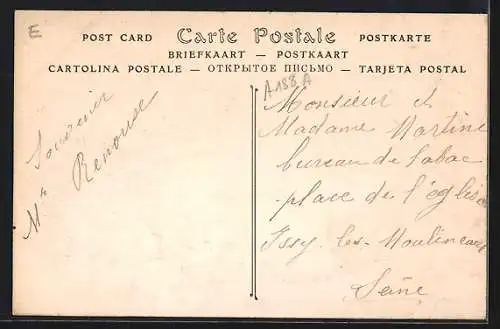 E
POST CARD Carte Postale POSTKARTE
BRIEFKAART — POSTKAART
CARTOLINA POSTALE — ОТКРЫТОЕ ПИСЬМО — TARJETA POSTAL
A188A
Souvenir
Mr
Monsieur &
Madame Martine
bureau de tabac
place de l'église
Issy les Moulineaux
Seine